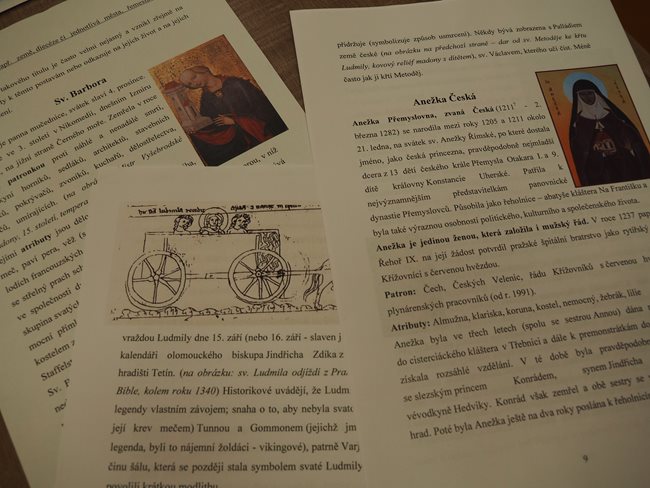 země, dítěte či jednotlivá města, řemesla
takového titulu je často velmi nejasný a vznikl zřejmě na
k těmto postavám nebo odkazuje na jejich život a na jejich
Sv. Barbora
panna mučednice, svátek slaví 4. prosince.
ve 3. století v Nikomedii, dnešním Izmiru
na jižní straně Černého moře. Zemřela v roce
patronkou proti náhlé a nenadálé smrti,
horníků, sedláků, architektů, stavebních
pokrývačů, zvoníků, kuchařů, dělostřelectva,
umírajících. (na
Vyšebrodské
15. století, tempera
atributy jsou
meč, paví pera, věž (s
lodích francouzských
se střelný prach
ve společnosti
skupina svatých
mocní
kostelem z
Sv. B
vraždou Ludmily dne 15. září (nebo 16. září - slaven j
kalendáři olomouckého biskupa Jindřicha Zdíka z
hradišti Tetín. (na obrázku: sv. Ludmila odjíždí z Pra
Bible, kolem roku 1340) Historikové uvádějí, že Ludm
legendy vlastním závojem; snaha o to, aby nebyla svatě
její krev mečem) Tunnou a Gommonem (jejichž jm
legenda, byli to nájemní žoldáci - vikingové), patrně Varj
činu šálu, která se později stala symbolem svaté Ludmily
povolili krátkou modlitbu
přidržuje (symbolizuje způsob usmrcení). Někdy bývá zobrazena s Palládiem
země české (na obrázku na předchozí straně – dar od sv. Metoděje ke křtu
Ludmily, kovový reliéf madony s dítětem), sv. Václavem, kterého učí číst. Méně
často jak ji křtí Metoděj.
Anežka Česká
Anežka Přemyslovna, zvaná Česká (1211 - 2.
března 1282) se narodila mezi roky 1205 a 1211 okolo
21. ledna, na svátek sv. Anežky Římské, po které dostala
jméno, jako česká princezna, pravděpodobně nejmladší
dcera z 13 dětí českého krále Přemysla Otakara I. a 9.
dítě královny Konstancie Uherské. Patřila k
nejvýznamnějším představitelkám panovnické
dynastie Přemyslovců. Působila jako řeholnice – abatyše kláštera Na Františku a
byla také výraznou osobností politického, kulturního a společenského života.
Anežka je jedinou ženou, která založila i mužský řád. V roce 1237 pap
Řehoř IX. na její žádost potvrdil pražské špitální bratrstvo jako rytířský
Křižovníci s červenou hvězdou.
Patron: Čech, Českých Velenic, řádu Křižovníků s červenou h
plynárenských pracovníků (od r. 1991).
Atributy: Almužna, klariska, koruna, kostel, nemocný, žebrák, lilie
Anežka byla ve třech letech (spolu se sestrou Annou) dána n
do cisterciáckého kláštera v Třebnici a dále k premonstrátkám do
získala rozsáhlé vzdělání. V té době byla pravděpodobně
se slezským princem Konrádem, synem Jindřicha
vévodkyně Hedviky. Konrád však zemřel a obě sestry se
hrad. Poté byla Anežka ještě na dva roky poslána k řeholnicí
9